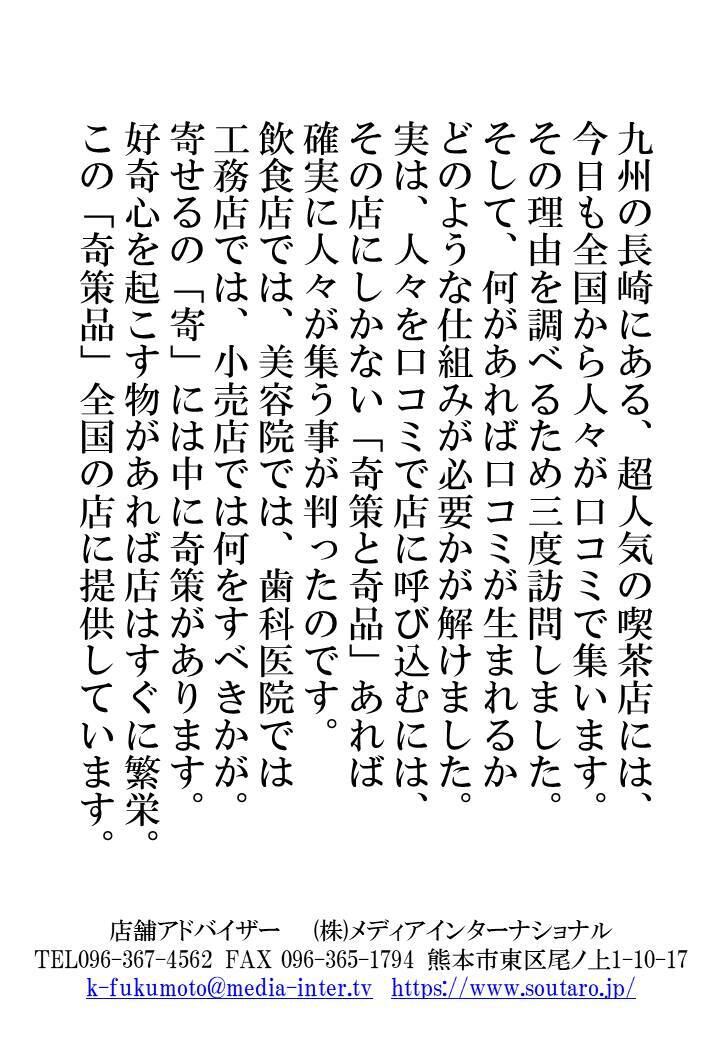 九州の長崎にある、超人気の喫茶店には、
今日も全国から人々が口コミで集います。
その理由を調べるため三度訪問しました。
そして、何があれば口コミが生まれるか
どのような仕組みが必要かが解けました。
実は、人々を口コミで店に呼び込むには、
その店にしかない「奇策と奇品」あれば
確実に人々が集う事が判ったのです。
飲食店では、美容院では、歯科医院では
工務店では、小売店では何をすべきかが。
寄せるの「寄」には中に奇策があります。
好奇心を起こす物があれば店はすぐに繁栄。
この「奇策品」全国の店に提供しています。
店舗アドバイザー　㈱メディアインターナショナル
TEL096-367-4562 FAX 096-365-1794 熊本市東区尾ノ上1-10-17
k-fukumoto@media-inter.tv https://www.soutaro.jp/